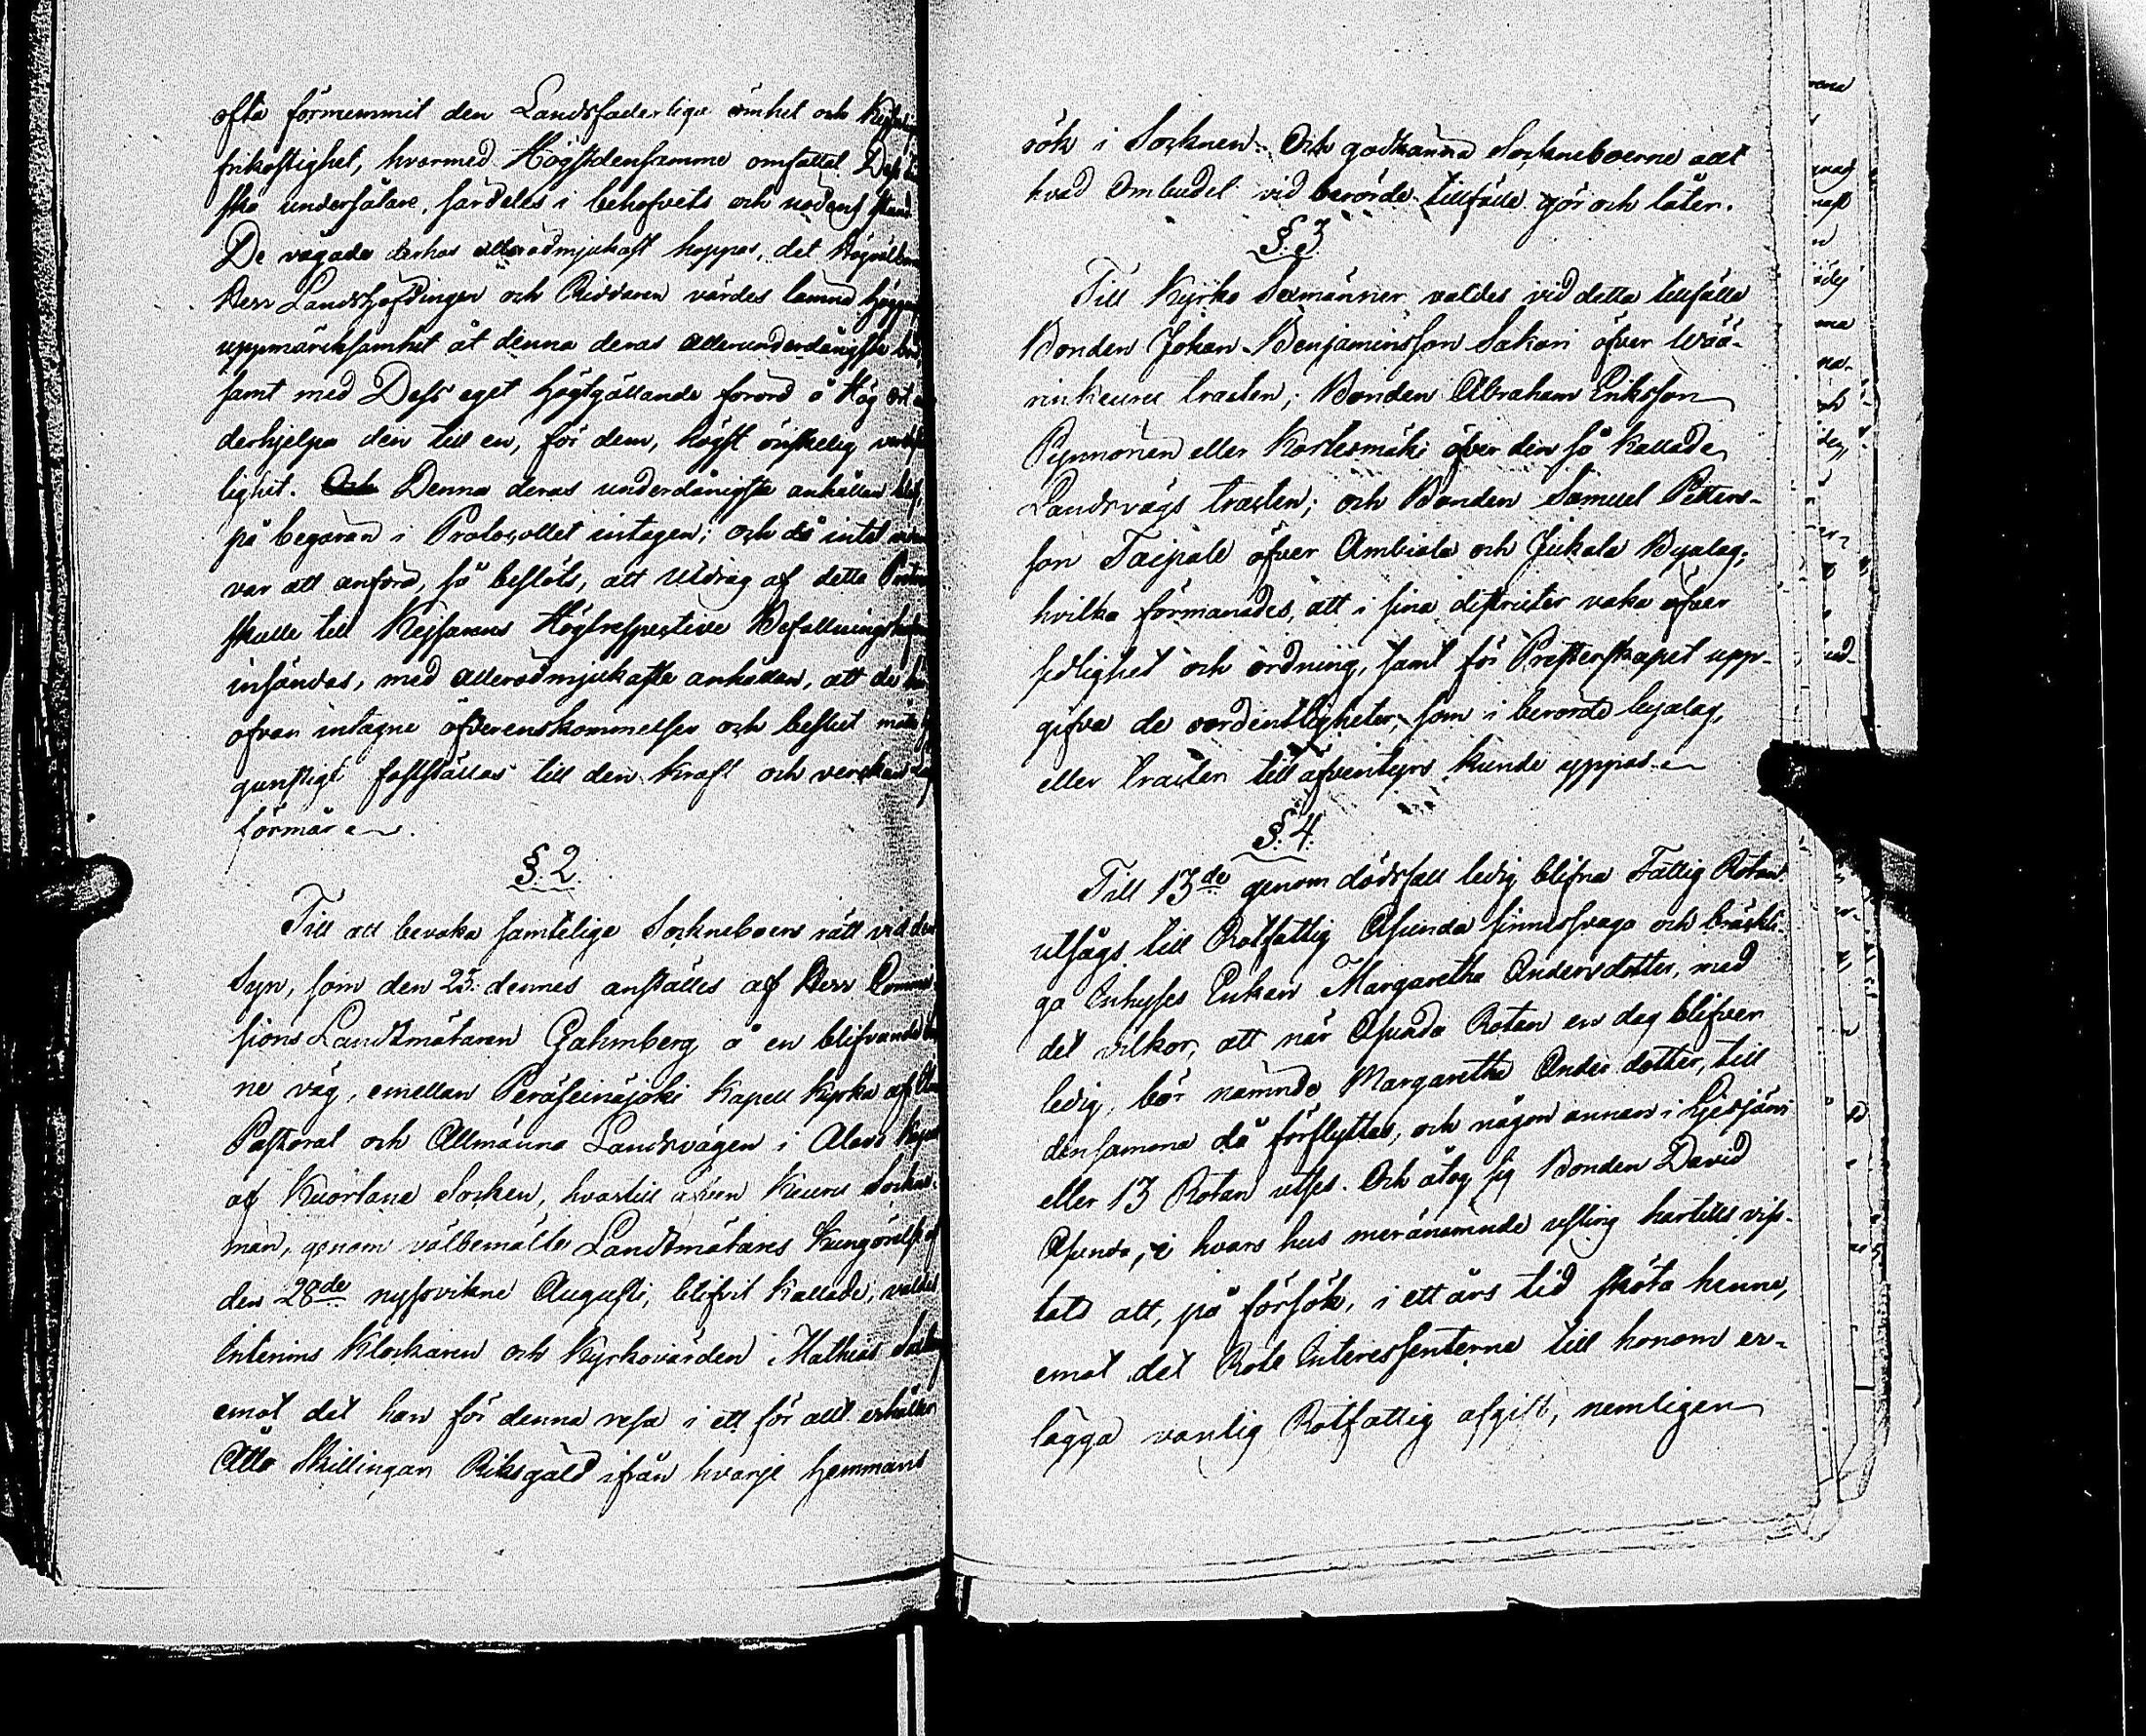 ofta förnummit den Landsfaderliga ömhet och
frikostighet, hvarmed Högstdensamme omfattat Dess
ska undersåtare, särdeles i behofvets och nödens stund
De vågade derhos allerödmjukast hoppas, det Högvälborne
Herr Landshöfdingen och Riddaren värdes lemna
uppmärksamhet åt denna deras allerunderdånigste
samt med Dess eget högtgällande förord å Hög ort
derhjelpa den till en, för dem, högst önskelig
lighet. Denna deras underdånigste anhållan blef
på begäran i Protocollet intagen; och då intet
var att anföra, så beslöts, att Utdrag af detta
skulle till Kejsarens Högstrespective Befallningshafvande
insändas, med allerödmjukaste anhållan, att de
ofvan intagne öfverenskommelser och beslut måtte
gunstigt fastställas till den kraft och verkan
förmår
§. 2.
Till att bevaka samtelige Sockneboers rätt vid den
Syn, som den 25. dennes anställes af Herr Commis-
sions Landtmätaren Gahmberg å en blifvande
ne väg, emellan Peräseinäjoki Kapell Kyrka af
Pastorat och Allmänna Landsvägen i Alavo
af Kuortane Socken, hvartill äfven Keuru Sockne-
män, genom välbemälte Landtmätares Kungörelse af
den 28de nyssvikne Augusti, blifvit kallade; valdes
Interims Klockaren och Kyrkovärden Mathias
emot det han för denna resa i ett för allt erhåller
Åtta Skillingar Riksgäld ifrån hvarje Hemmans
rök i Socknen. Och godkänna Sockneboerne allt
hvad Ombudet vid berörde tillfälle gör och låter.
§. 3
Till Kyrko Sexmänner valdes vid detta tillfälle
Bonden Johan Benjaminsson Sakari öfver Wää-
rinkeuru tracten; Bonden Abraham Eriksson
Pynnönen eller Kortesmäki öfver den så kallade
Landsvägs tracten; och Bonden Samuel Petters-
son Taipale öfver Ambiala och Jukala Byalag,
hvilka förmanades, att i sina districter vaka öfver
sedlighet och ordning, samt för Presterskapet upp-
gifva de oordentligheter, som i berörde byalag,
eller tracter till äfventyrs kunde yppas
§. 4.
Till 13de genom dödsfall ledig blifna Fattig Rotan
utsågs till Rotfattig Asunda sinnessvaga och bräckli-
ga Inhyses Enkan Margaretha Andersdotter, med
det vilkor, att när Asunda Rotan en dag blifver
ledig, bör nämnde Margaretha Anders dotter, till
densamma då förflyttas, och någon annan i
eller 13 Rotan utses. Och åtog sig Bonden David
Asunda, i hvars hus meranämnde usling härtills vis-
tats att, på försök, i ett års tid sköta henne,
emot det Rote Interessenterne till honom er-
lägga vanlig Rotfattig afgift, nemligen